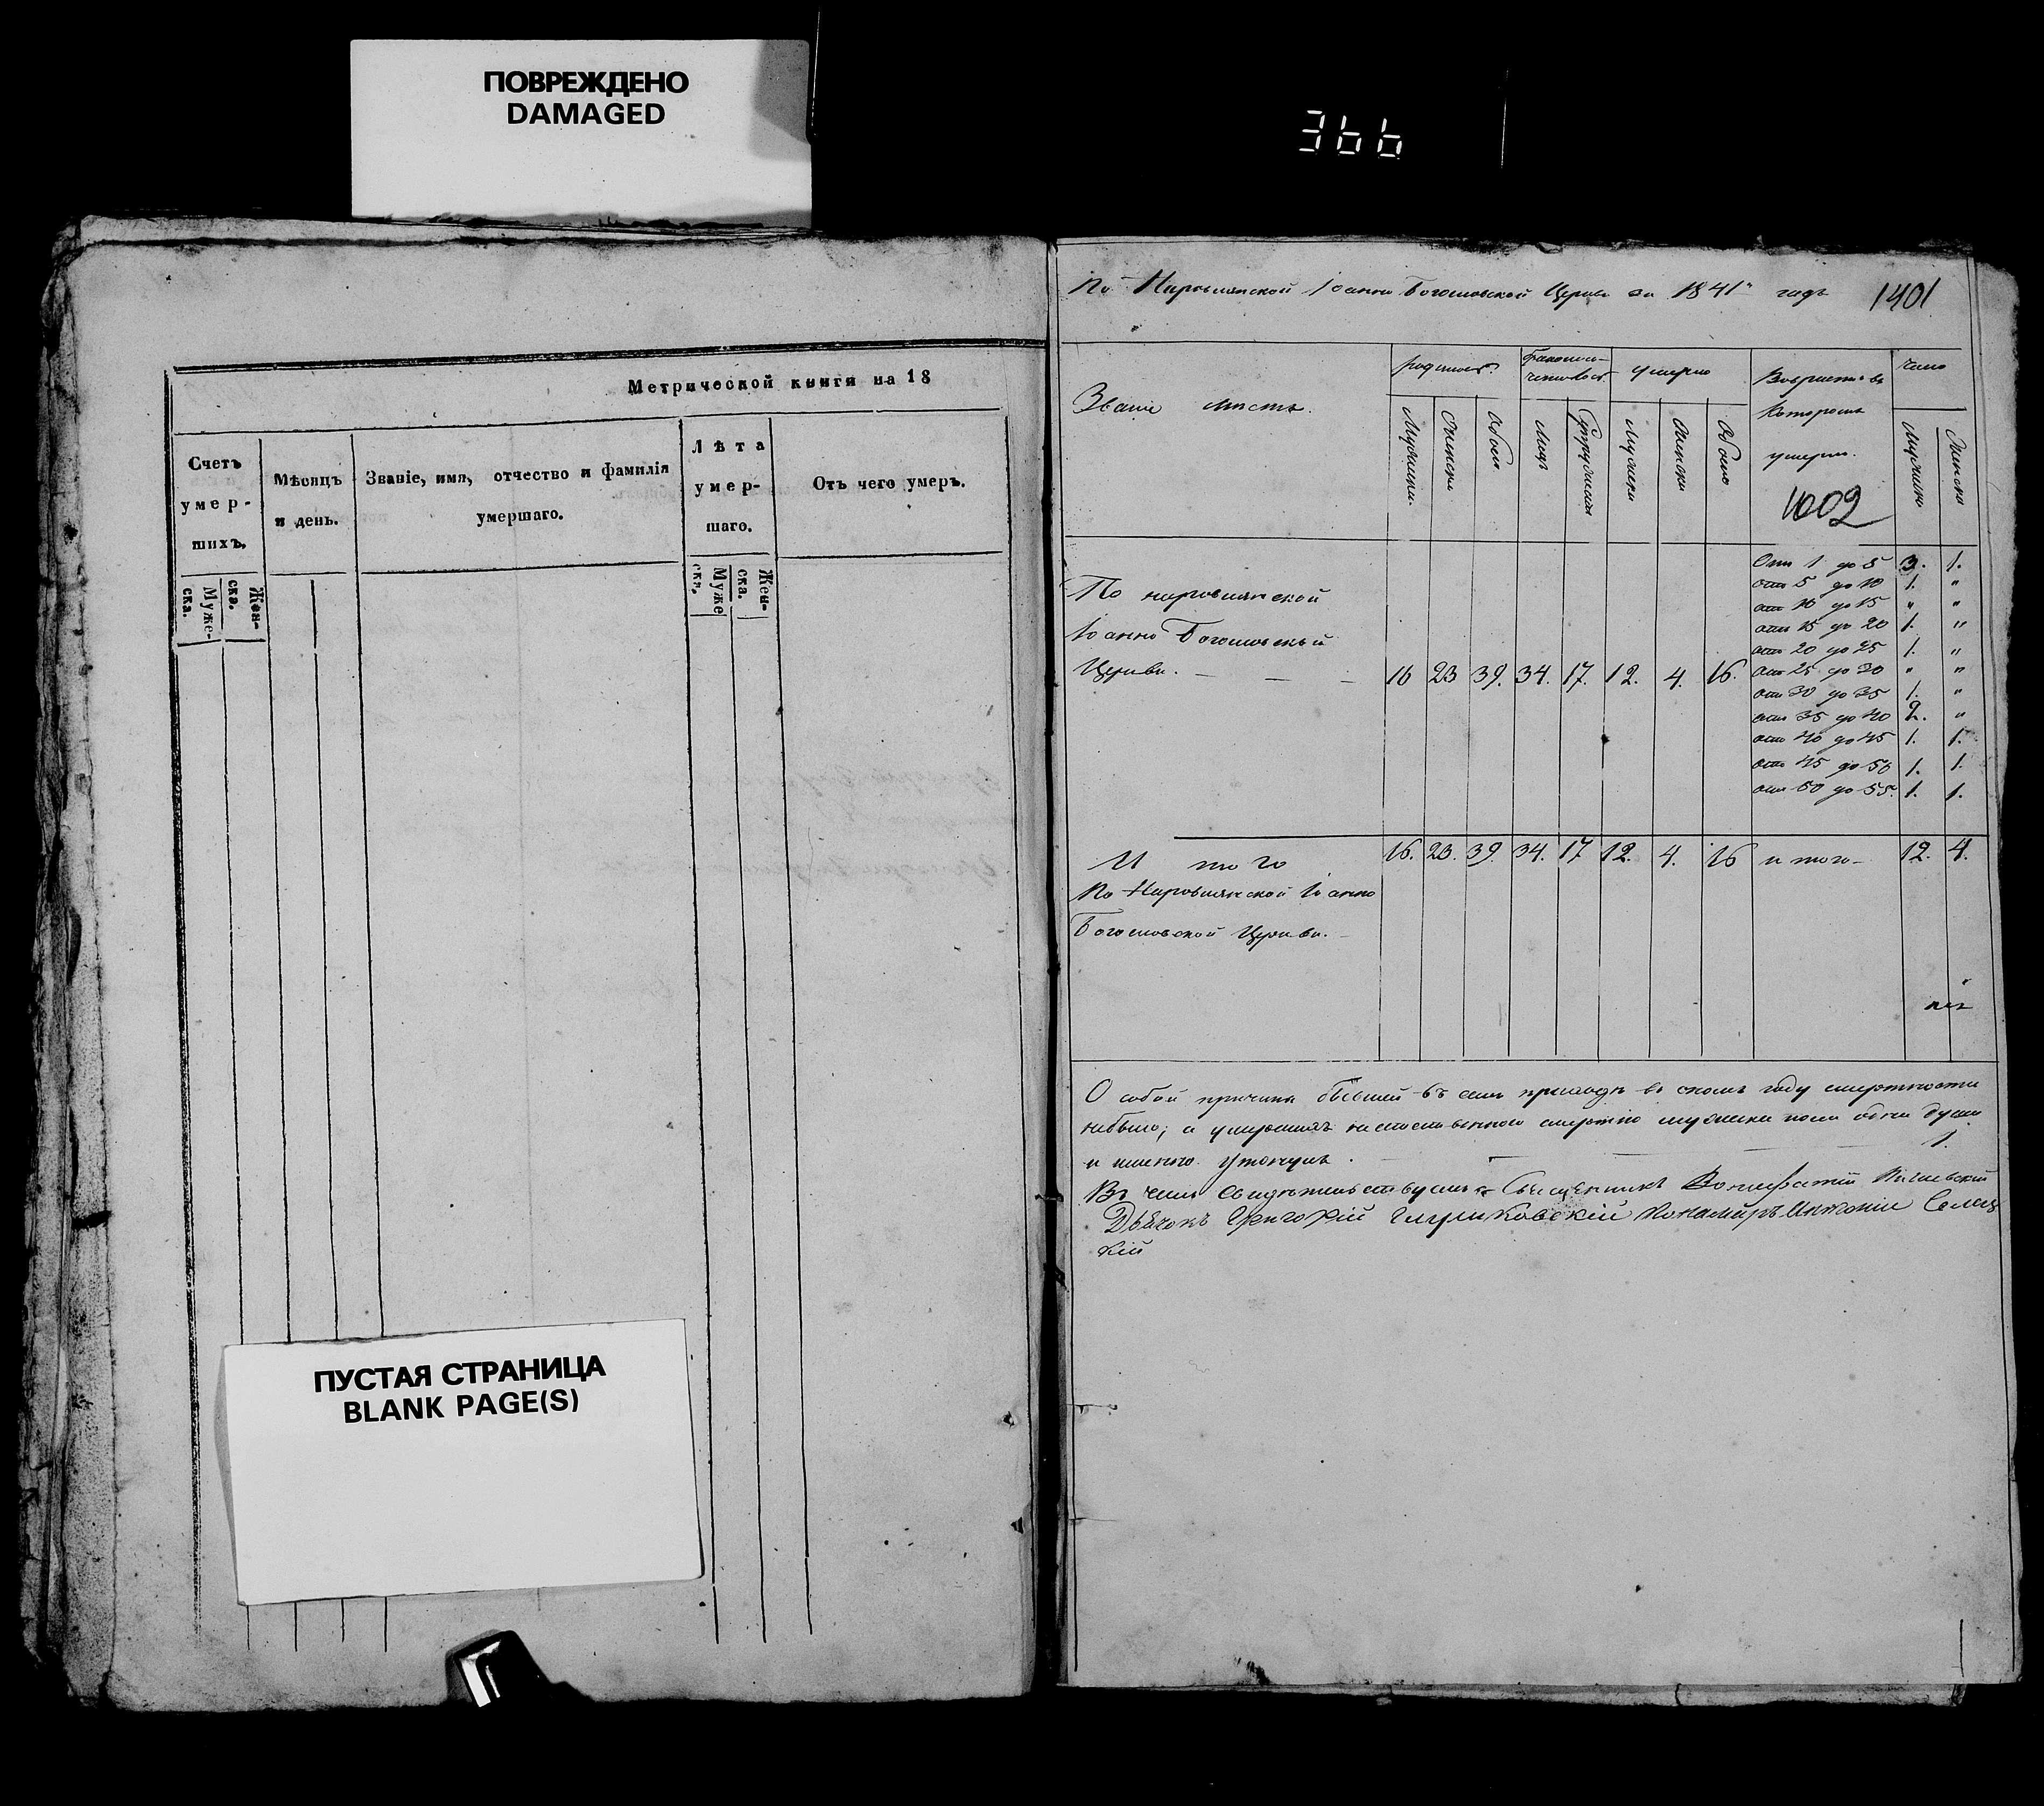 ПОВРЕЖДЕНО
DAMAGED
366
Метрической книги на 18
Счетъ умер-шихъ.
Мѣсяцъ и день.
Званіе, имя, отчество и фамилія умершаго.
Лѣта умер-шаго.
Отъ чего умеръ.
Муже-ска.
Жен-ска.
Муже ска.
Жен-ска.
ПУСТАЯ СТРАНИЦА
BLANK PAGE(S)
По Наровлянской Іоанно Богословской Церкви за 1841й годъ 1401
Званіе мѣстъ.
родилось.
умерло
Возрастъ въ которомъ умерли.
число
1002
Мужеска
Женска
Обоего
Мужеска
Женска
Обоего
Мужеска
Женска
Отъ 1 до 5 3. 1.
отъ 5 до 10 1. "
отъ 10 до 15 " "
отъ 15 до 20 1. "
отъ 20 до 25 1. "
отъ 25 до 30 " "
отъ 30 до 35 1. "
отъ 35 до 40 2. "
отъ 40 до 45 1. 1.
отъ 45 до 50 1. 1.
отъ 50 до 55. 1. 1.
По наровлянской
Іоанно Богословской
Церкви. 16 23 39. 34. 17. 12. 4. 16.
И того 16. 23. 39. 34. 17 12. 4. 16 и того 12. 4.
По Наровлянской Іоанно
Богословской Церкви.
Особой причины бывшей въ семъ приходѣ въ семъ году смертности
небыло; а умершихъ неестественною смертію мужеска пола одна душа
и именно утонулъ. 1.
Въ чемъ свидѣтельствуемъ Священникъ Вонифатій
Дьячокъ Григорій Глушковскій Пономарь Антоній Селец
кій